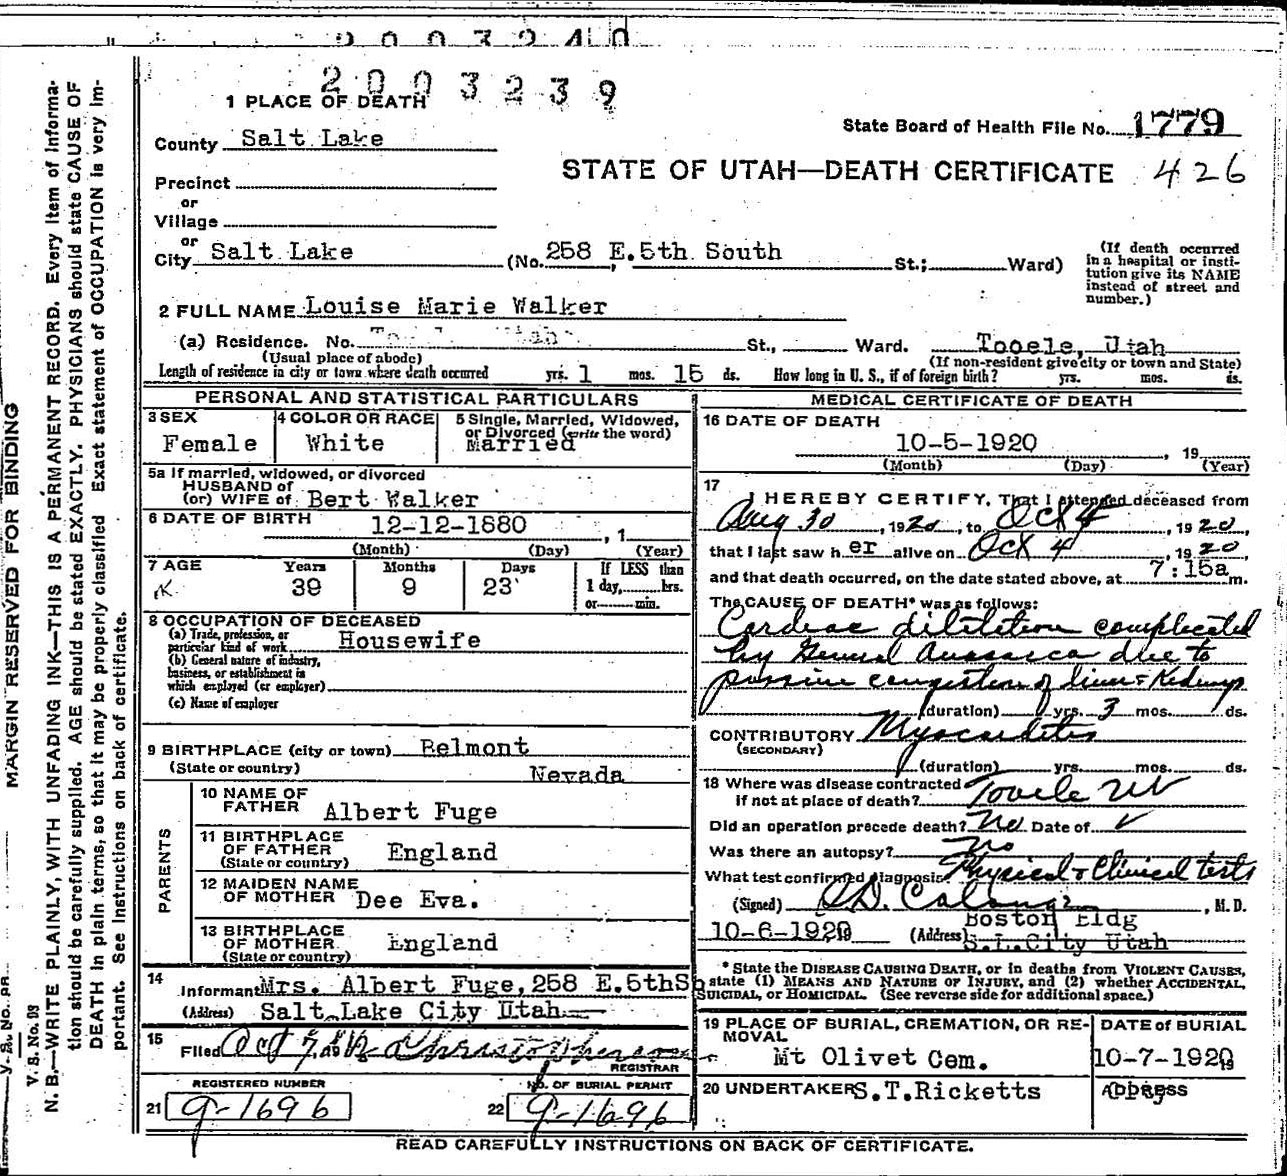 2003240
2003239
1 PLACE OF DEATH
State Board of Health File No. 1779
County Salt Lake
STATE OF UTAH—DEATH CERTIFICATE 426
Precinct
or
Village
or
City Salt Lake (No. 258 E.5th South St.; Ward)
(If death occurred in a hospital or institution give its NAME instead of street and number.)
2 FULL NAME Louise Marie Walker
(a) Residence. No. St., Ward. Tooele, Utah
(Usual place of abode) (If non-resident give city or town and State)
Length of residence in city or town where death occurred yrs. 1 mos. 15 ds. How long in U. S., if of foreign birth? yrs. mos. ds.
PERSONAL AND STATISTICAL PARTICULARS
3 SEX Female
4 COLOR OR RACE White
5 Single, Married, Widowed, or Divorced (write the word) Married
5a If married, widowed, or divorced
HUSBAND of
(or) WIFE of Bert Walker
6 DATE OF BIRTH 12-12-1880 , 1
(Month) (Day) (Year)
7 AGE Years Months Days If LESS than
39 9 23 1 day, hrs.
or min.
8 OCCUPATION OF DECEASED
(a) Trade, profession, or particular kind of work Housewife
(b) General nature of industry, business, or establishment in which employed (or employer)
(c) Name of employer
9 BIRTHPLACE (city or town) Belmont
(State or country) Nevada
PARENTS
10 NAME OF FATHER Albert Fuge
11 BIRTHPLACE OF FATHER (State or country) England
12 MAIDEN NAME OF MOTHER Dee Eva.
13 BIRTHPLACE OF MOTHER (State or country) England
14 Informant Mrs. Albert Fuge, 258 E.5thS
(Address) Salt Lake City Utah
15 Filed Oct 7, Christopherson
REGISTRAR
REGISTERED NUMBER
21 9-1696
NO. OF BURIAL PERMIT
22 9-1696
MEDICAL CERTIFICATE OF DEATH
16 DATE OF DEATH
10-5-1920 , 19
(Month) (Day) (Year)
17 I HEREBY CERTIFY, That I attended deceased from
Aug 30 , 1920, to Oct 4 , 1920
that I last saw her alive on Oct 4 , 1920
and that death occurred, on the date stated above, at 7:15a m.
The CAUSE OF DEATH* was as follows:
Cardiac dilitation complicated
by General Anasarca due to
passive congestion of liver & Kidneys
(duration) yrs. 3 mos. ds.
CONTRIBUTORY Myocarditis
(SECONDARY)
(duration) yrs. mos. ds.
18 Where was disease contracted
if not at place of death? Tooele Ut
Did an operation precede death? No Date of ✓
Was there an autopsy? No
What test confirmed diagnosis Physical & Clinical tests
(Signed) , M. D.
10-6-1920 19 (Address) Boston Bldg
S.L.City Utah
* State the DISEASE CAUSING DEATH, or in deaths from VIOLENT CAUSES,
state (1) MEANS AND NATURE OF INJURY, and (2) whether ACCIDENTAL,
SUICIDAL, or HOMICIDAL. (See reverse side for additional space.)
19 PLACE OF BURIAL, CREMATION, OR REMOVAL
Mt Olivet Cem.
DATE of BURIAL
10-7-1920 19
20 UNDERTAKER S.T.Ricketts
ADDRESS
City
READ CAREFULLY INSTRUCTIONS ON BACK OF CERTIFICATE.
MARGIN RESERVED FOR BINDING
V. S. No. 98
N. B.—WRITE PLAINLY, WITH UNFADING INK—THIS IS A PERMANENT RECORD. Every item of Information should be carefully supplied. AGE should be stated EXACTLY. PHYSICIANS should state CAUSE OF DEATH in plain terms, so that it may be properly classified Exact statement of OCCUPATION is very important. See instructions on back of certificate.